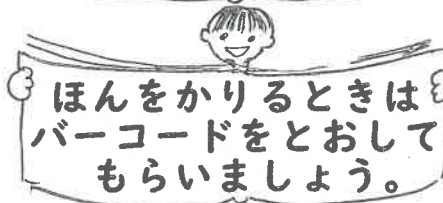 ほんをかりるときは
バーコードをとおして
もらいましょう。